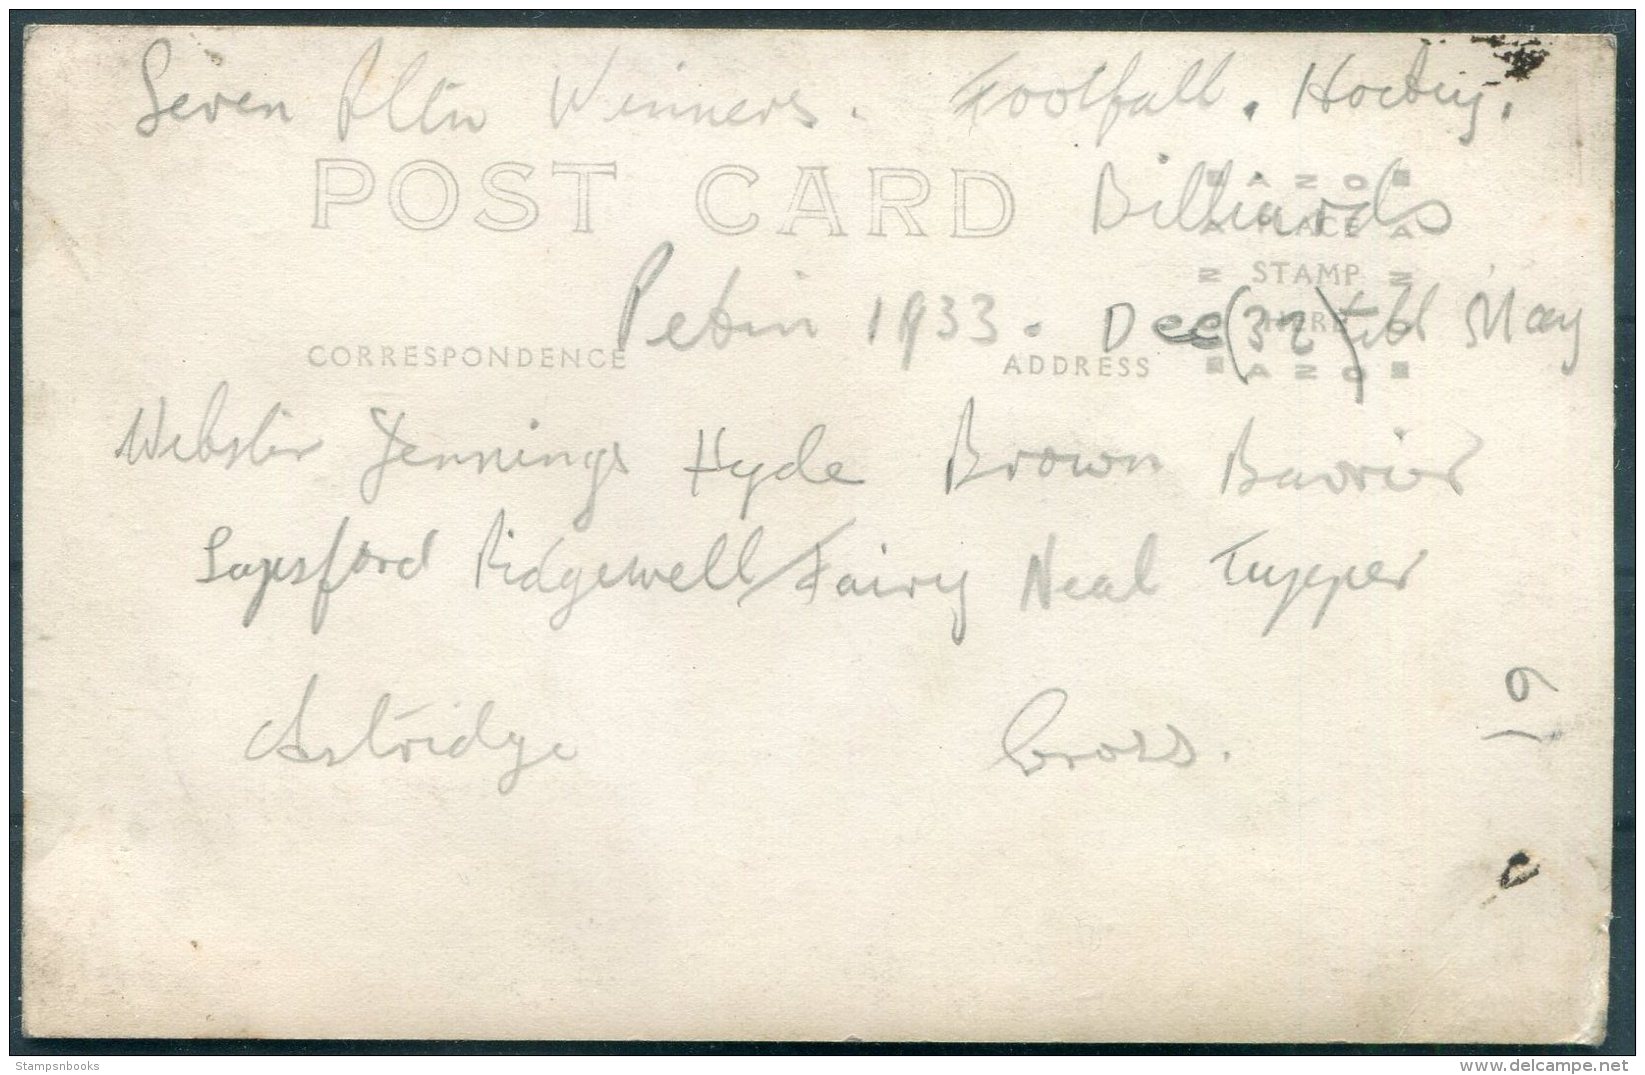 Seven Pltn Winners. Football. Hockey.
Billiards
POST CARD
AZO
PLACE
STAMP
HERE
AZO
Pekin 1933. Dec (32) till May
CORRESPONDENCE
ADDRESS
Webster Jennings Hyde Brown Barrier
Sapsford Ridgewell/Fairy Neal Tupper
Astridge Cross.
19
Stampsnbooks
www.delcampe.net